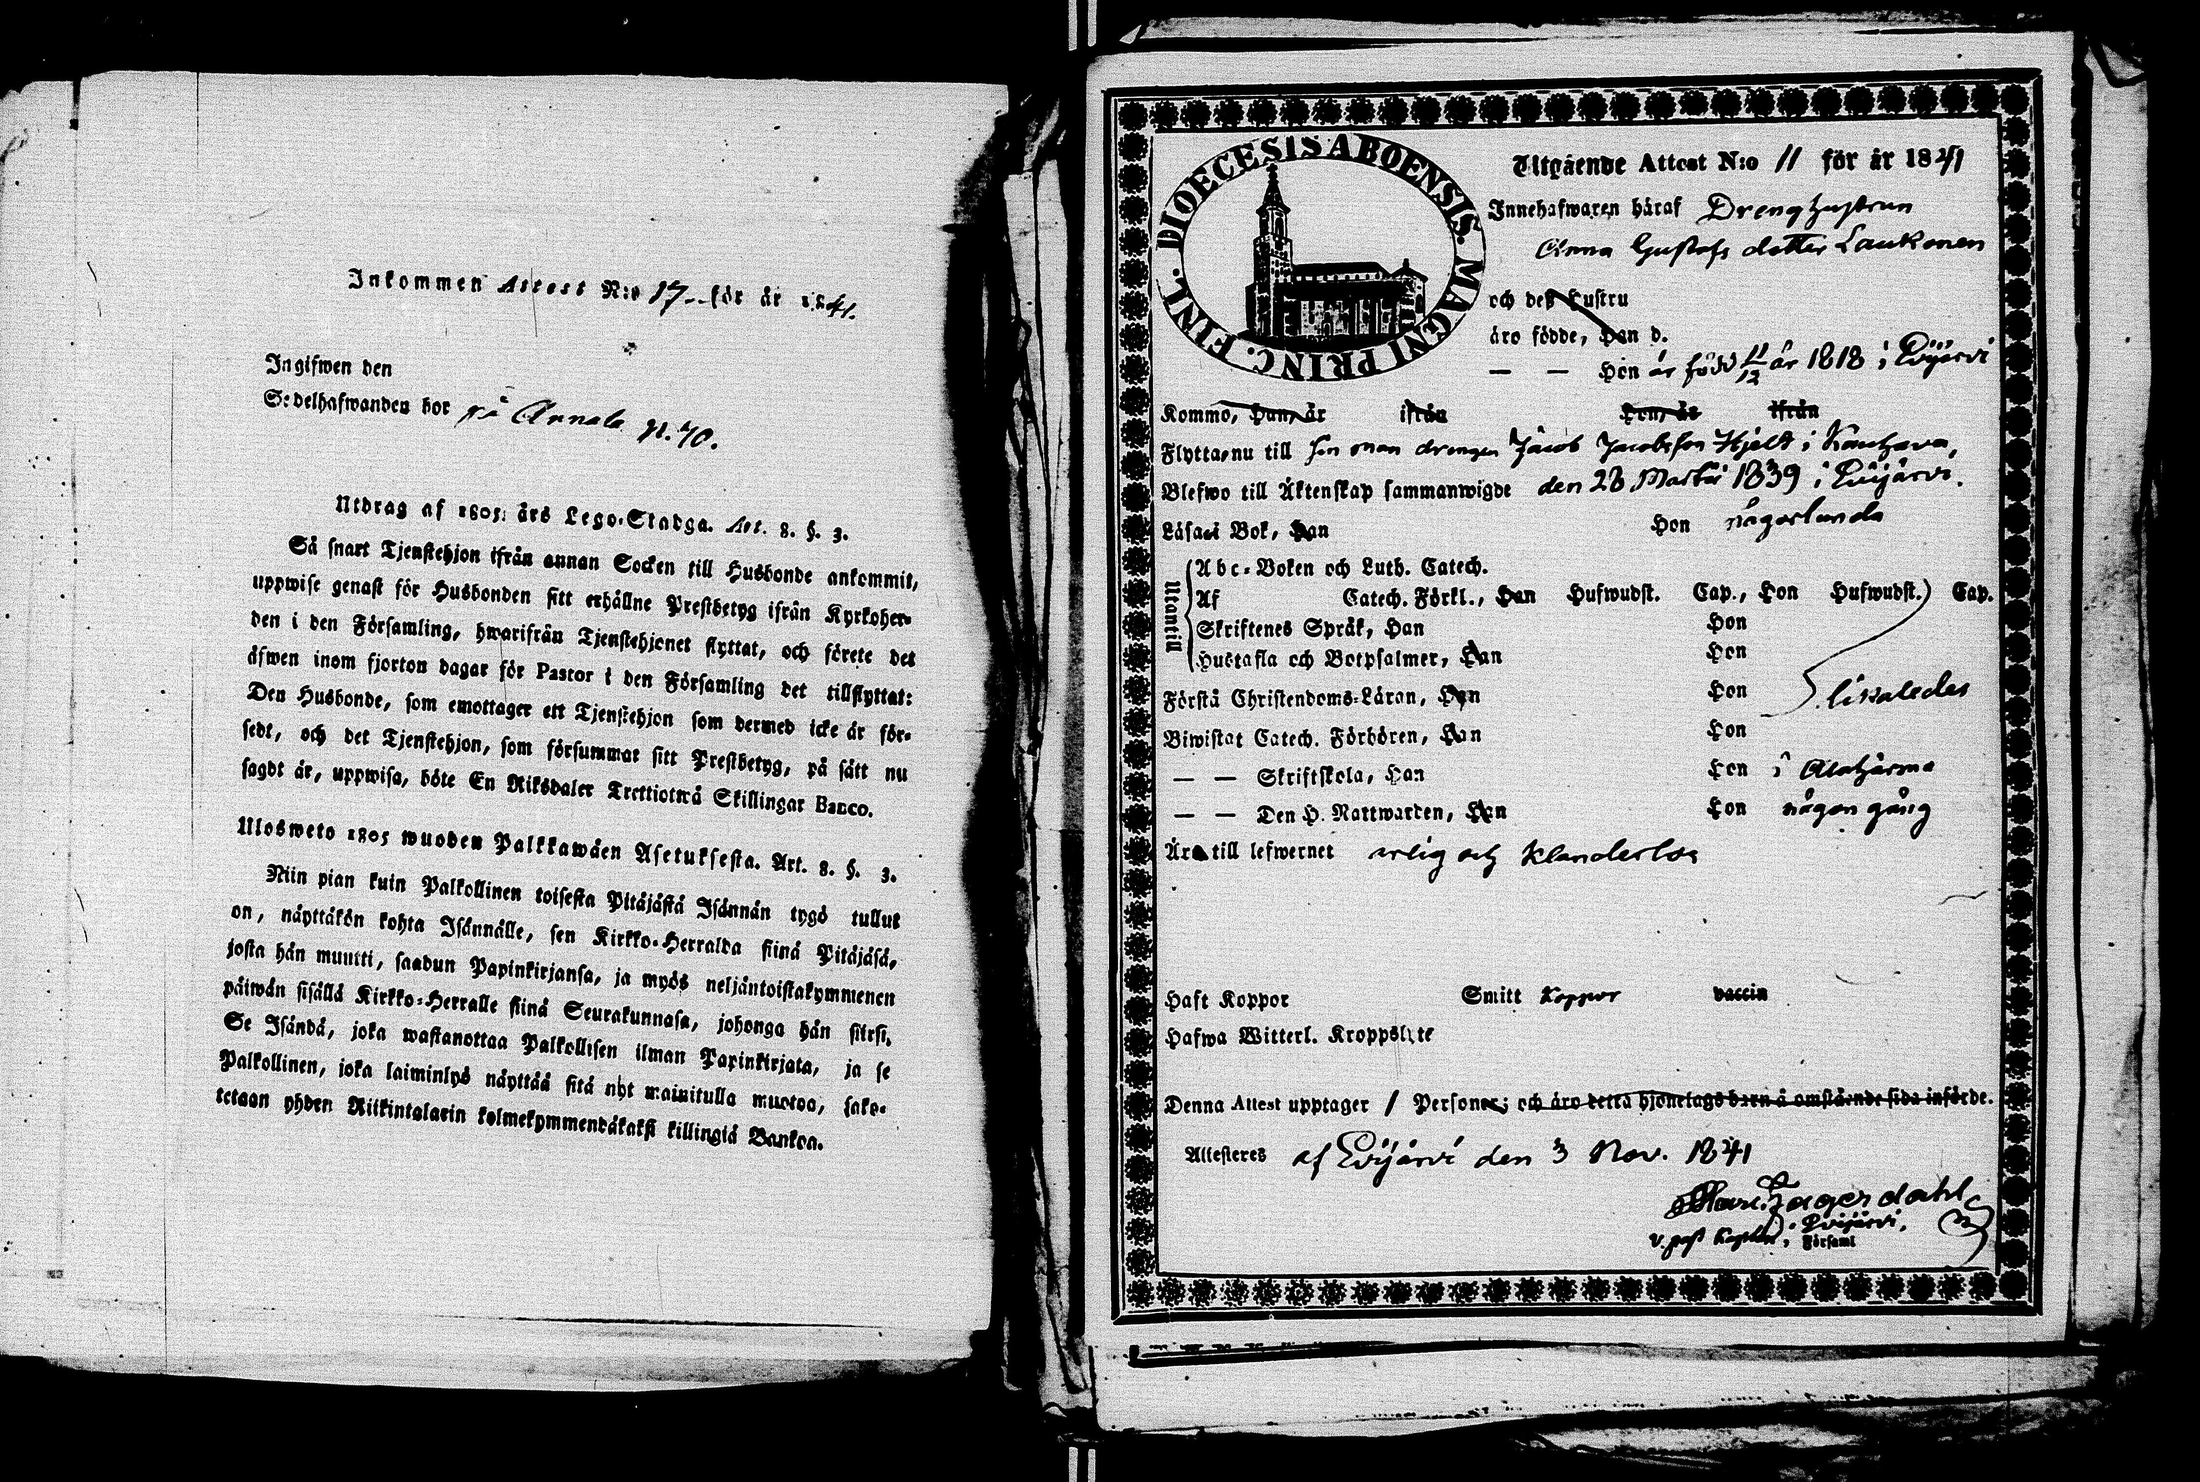 Inkommen Attest N:o 17 för år 1841.
Ingifwen den
Sedelhafwanden bor på Annala N. 70.
Utdrag af 1805 års Lego-Stadga. Art. 8. §. 3.
Så snart Tjenstehjon ifrån annan Socken till Husbonde ankommit,
uppwise genast för Husbonden sitt erhållne Prestbetyg ifrån Kyrkoher-
den i den Församling, hwarifrån Tjenstehjonet flyttat, och förete det
äfwen inom fjorton dagar för Pastor i den Församling det tillflyttat:
Den Husbonde, som emottager ett Tjenstehjon som dermed icke är för-
sedt, och det Tjenstehjon, som försummat sitt Prestbetyg, på sätt nu
sagdt är, uppwisa, böte En Riksdaler Trettiotwå Skillingar Banco.
Ulosweto 1805 wuoden Palkkawäen Asetuksesta. Art. 8. §. 3.
Niin pian kuin Palkollinen toisesta Pitäjästä Isännän tygö tullut
on, näyttäkön kohta Isännälle, sen Kirkko-Herralda siinä Pitäjäsä,
josta hän muutti, saadun Papinkirjansa, ja myös neljäntoistakymmenen
päiwän sisällä Kirkko-Herralle siinä Seurakunnasa, johonga hän siirsi.
Se Isändä, joka wastanottaa Palkollisen ilman Papinkirjata, ja se
Palkollinen, joka laiminlyö näyttää sitä nyt mainitulla muotoa, sako-
tetaan yhden Riikintalarin kolmekymmendäkaksi killingiä Bankoa.
DIOECESIS ABOENSIS. MAGNI PRINC. FINL.
Utgående Attest N:o 11 för år 1841
Innehafwaren häraf Dreng hustrun
Anna Gustafs dotter Laukonen
och deß Hustru
äro födde, Han d.
— — Hon är född 11/12 år 1818 i Evijärvi
Kommo, Han, är ifrån Hon, är ifrån
Flytta nu till sin man drengen Jacob Jacobsson Hjelt i Kauhava,
Blefwo till Äktenskap sammanwigde den 28 Martii 1839 i Evijärvi.
Läsa i Bok, Han Hon någorlunda
Utantill
Abc-Boken och Luth. Catech.
Af Catech. Förkl., Han Hufwudst. Cap., Hon Hufwudst. Cap.
Skriftenes Språk, Han Hon
Hustafla och Botpsalmer, Han Hon
Förstå Christendoms-Läran, Han Hon likaledes
Biwistat Catech. Förhören, Han Hon
— — Skriftskola, Han Hon i Alahärmä
— — Den H. Nattwarden, Han Hon någon gång
Är till lefwernet ärlig och klanderlös
Haft Koppor Smitt Koppor vaccin
Hafwa Witterl. Kroppslyte
Denna Attest upptager 1 Person; och äro detta hjonelags barn å omstående sida införde.
Attesteres af Evijärvi den 3 Nov. 1841
Lagerdahl
v. past Kaplan, i Evijärvi, Församl